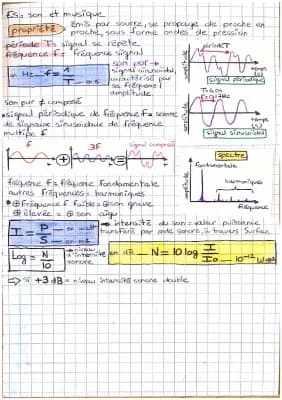 ES: son et musique
propriété
Émis par source, se propage de proche en
proche, sous forme ondes de pression
période T: signal se répète
fréquence f = fréquence signal
en Hz — f = 1/T — en s
son pur →
signal sinusoïdal,
caractérisé par
sa fréquence/
amplitude
périodeT
amplitude
temps (s)
signal périodique
amplitude
temps
(s)
signal sinusoïdal
son pur ≠ composé
• signal périodique de fréquence f = somme
de signaux sinusoïdaux de fréquence
multiple f
f
3f
signal composé
+
=
spectre
amplitude
fondamentale
harmoniques
fréquence
fréquence f = fréquence fondamentale
autres fréquences = harmoniques
• ⊕ fréquence f faible = ⊕ son grave
⊕ élevée = ⊕ son aigu
I = P/S
→ intensité du son = valeur puissance
transféré par onde sonore, à travers surface
Log = N/10
niveau
d'intensité
sonore
en dB — N = 10 log I/I0 — 10⁻¹² W.m⁻²
⇒ si +3 dB = niveau intensité sonore double